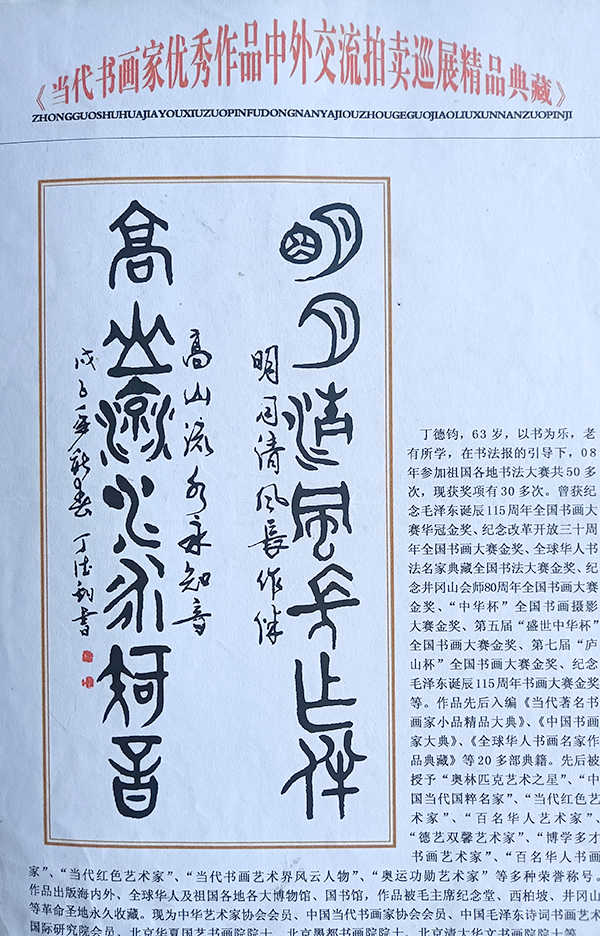 《当代书画家优秀作品中外交流拍卖巡展精品典藏》
ZHONGGUOSHUHUAJIAYOUXIUZUOPINFUDONGNANYAJIOUZHOUGEGUOJIAOLIUXUNNANZUOPINJI
明月清風長作伴
明月清风長作伴
高山流水永知音
高山流水永知音
戊子年新春 丁德钧书
丁德钧，63岁，以书为乐，老
有所学，在书法报的引导下，08
年参加祖国各地书法大赛共50多
次，现获奖项有30多次。曾获纪
念毛泽东诞辰115周年全国书画大
赛华冠金奖、纪念改革开放三十周
年全国书画大赛金奖、全球华人书
法名家典藏全国书法大赛金奖、纪
念井冈山会师80周年全国书画大赛
金奖、“中华杯”全国书画摄影
大赛金奖、第五届“盛世中华杯”
全国书画大赛金奖、第七届“庐
山杯”全国书画大赛金奖、纪念
毛泽东诞辰115周年书画大赛金奖
等。作品先后入编《当代著名书
画家小品精品大典》、《中国书画
家大典》、《全球华人书画名家作
品典藏》等20多部典籍。先后被
授予“奥林匹克艺术之星”、“中
国当代国粹名家”、“当代红色艺
术家”、“百名华人艺术家”、
“德艺双馨艺术家”、“博学多才
书画艺术家”、“百名华人书画
家”、“当代红色艺术家”、“当代书画艺术界风云人物”、“奥运功勋艺术家”等多种荣誉称号。
作品出版海内外、全球华人及祖国各地各大博物馆、国书馆，作品被毛主席纪念堂、西柏坡、井冈山
等革命圣地永久收藏。现为中华艺术家协会会员、中国当代书画家协会会员、中国毛泽东诗词书画艺术
国际研究院会员、北京华夏国艺书画院院士、北京墨都书画院院士、北京清大华文书画院院士等